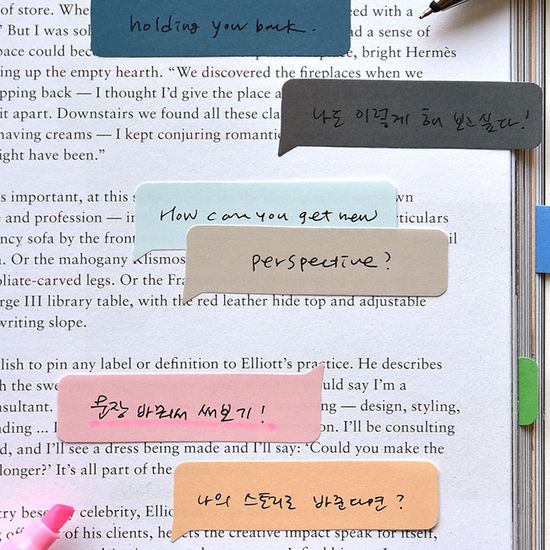 of store. When
eed with a
' But I was sol
d a sense of
holding you back.
pace could beco
, bright Hermès
ing up the empty hearth. “We discovered the fireplaces when we
pping back — I thought I'd give the place a
it apart. Downstairs we found all these cla
나도 이렇게 해 보고싶다!
having creams — I kept conjuring romantic
ight have been.”
s important, at this s
own
e and profession — in
rticulars
How can you get new
ncy sofa by the front
il
n. Or the mahogany Klismos
perspective?
oliate-carved legs. Or the Fra
rge III library table, with the red leather hide top and adjustable
writing slope.
lish to pin any label or definition to Elliott's practice. He describes
h the swe
uld say I'm a
nsultant.
ng — design, styling,
문장 바꿔서 써보기!
nding ... I
on. I'll be consulting
d, and I'll see a dress being made and I'll say: ‘Could you make the
longer?’ It's all part of the
나의 스토리로 바꾼다면?
try bese
y celebrity, Ellio
ng off
e of his clients, he lets the creative impact speak for itself,